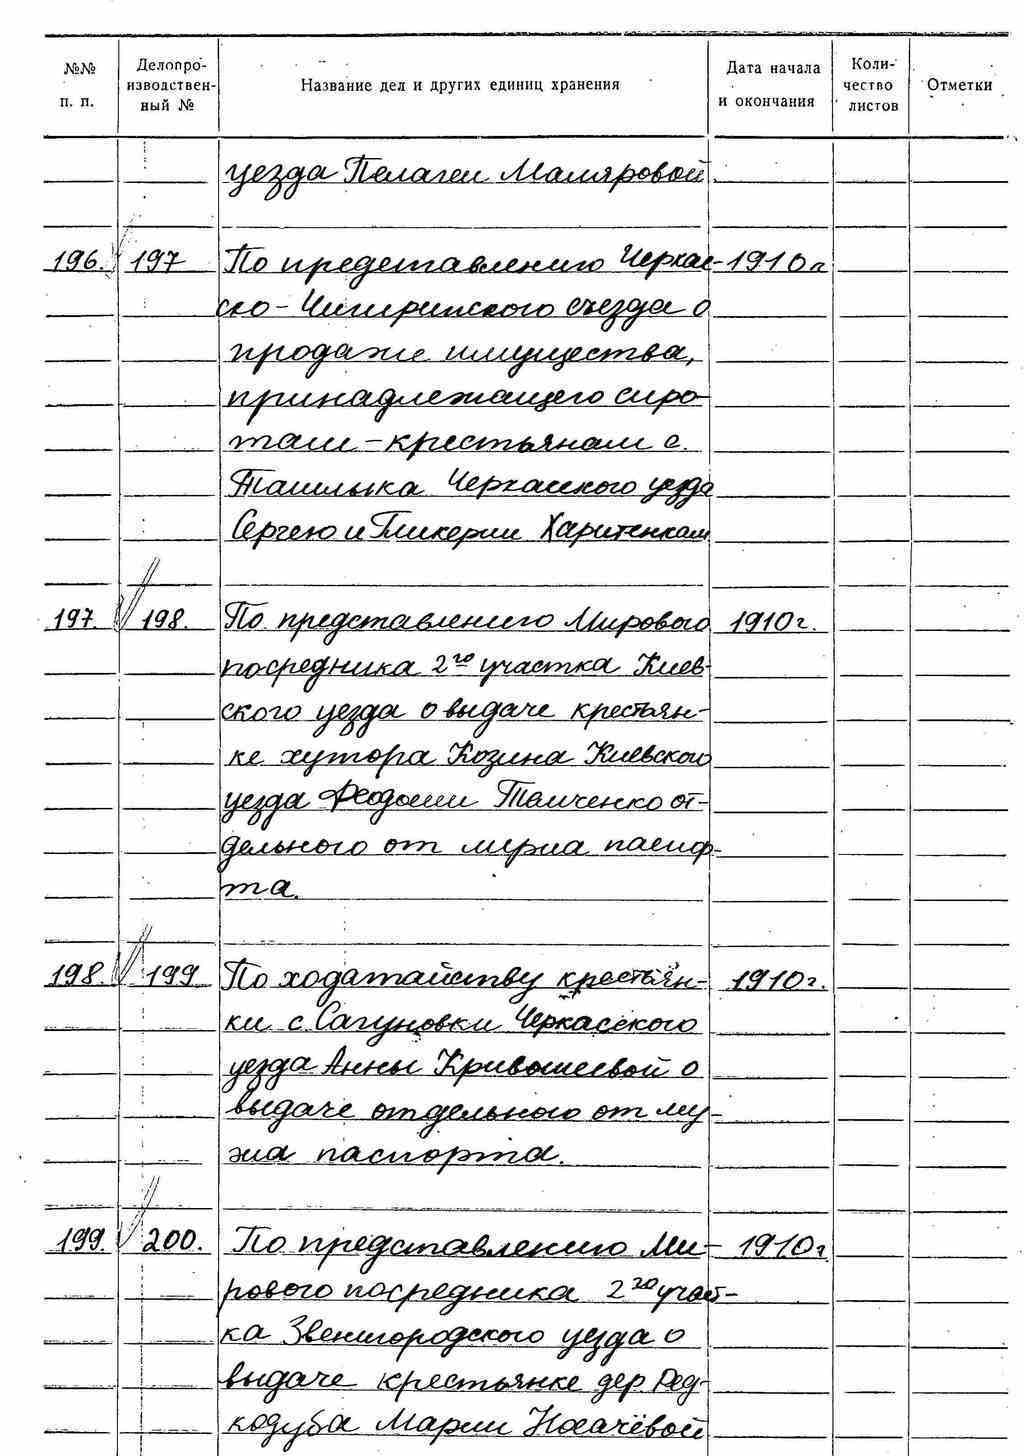 №№ п. п. Делопроизводственный № Название дел и других единиц хранения Дата начала и окончания Количество листов Отметки
уезда Пелагеи Маляровой.
196. 197 По представлению Черкас- 1910 г.
ско-Чигиринского съезда о
продаже имущества,
принадлежащего сиро-
там - крестьянам с.
Ташлыка Черкасского уезда
Сергею и Гликерии Харитенкам
197. 198. По представлению Мирового 1910 г.
посредника 2го участка Киев-
ского уезда о выдаче крестьян-
ке хутора Козина Киевского
уезда Феодосии Темченко от-
дельного от мужа паспор-
та.
198. 199 По ходатайству крестьян- 1910 г.
ки с. Сагуновки Черкасского
уезда Анны Кривошеевой о
выдаче отдельного от му-
жа паспорта.
199. 200. По представлению Ми- 1910 г.
рового посредника 2го участ-
ка Звенигородского уезда о
выдаче крестьянке дер. Ред-
кодуба Марии Носачёвой